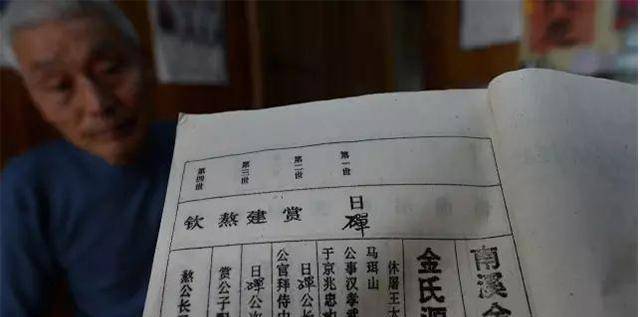 南溪
金氏源
第一世
第二世
第三世
第四世
日磾
赏
建
熬
钦
休屠王太
马珥山
公事汉孝武
于京兆忠
日磾公长
公官拜侍中
日磾公次
赏公子
熬公长